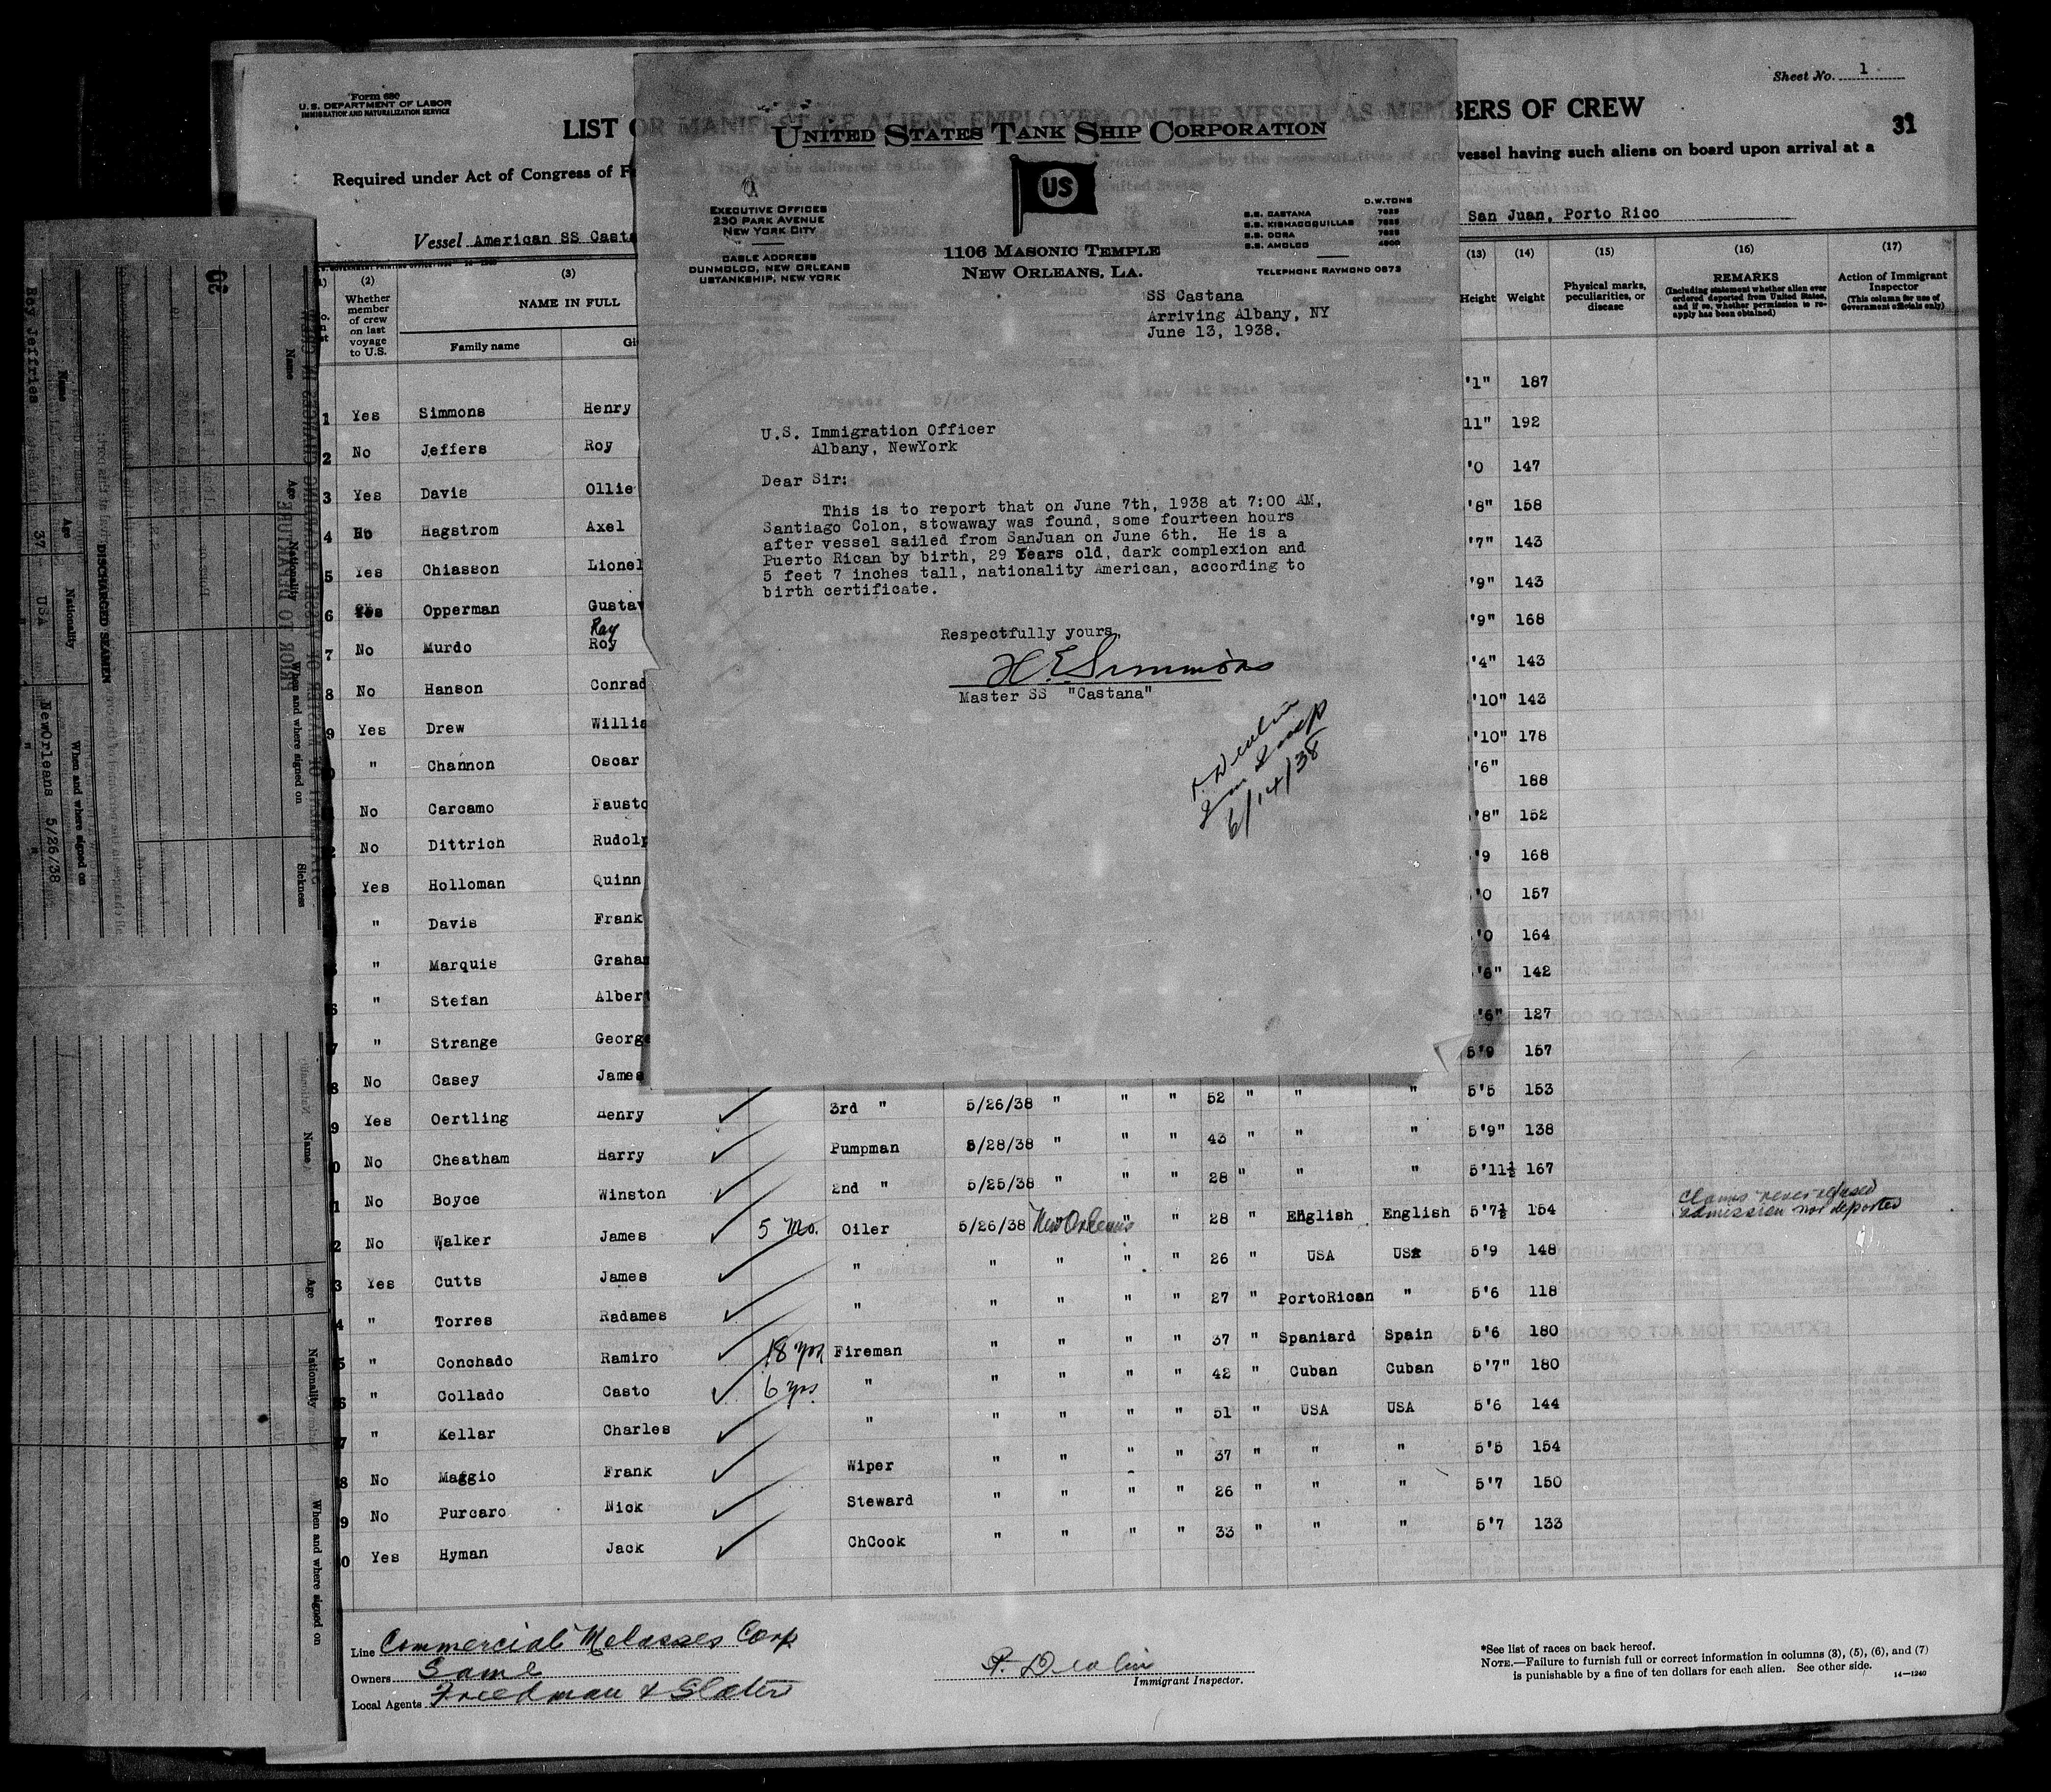 Sheet No. 1
31
Form 680
U.S. DEPARTMENT OF LABOR
IMMIGRATION AND NATURALIZATION SERVICE
LIST OR MANIFEST OF ALIENS EMPLOYED ON THE VESSEL AS MEMBERS OF CREW
Required under Act of Congress of F
vessel having such aliens on board upon arrival at a
Vessel American SS Casta
San Juan, Porto Rico
UNITED STATES TANK SHIP CORPORATION
US
EXECUTIVE OFFICES
230 PARK AVENUE
NEW YORK CITY
CABLE ADDRESS
DUNMOLCO, NEW ORLEANS
USTANKSHIP, NEW YORK
1106 MASONIC TEMPLE
NEW ORLEANS, LA.
D.W.TONS
S.S. CASTANA 7625
S.S. KISHACOQUILLAS 7625
S.S. DORA 7625
S.S. AMOLCO 4200
TELEPHONE RAYMOND 0873
SS Castana
Arriving Albany, NY
June 13, 1938.
U.S. Immigration Officer
Albany, NewYork
Dear Sir:
This is to report that on June 7th, 1938 at 7:00 AM,
Santiago Colon, stowaway was found, some fourteen hours
after vessel sailed from SanJuan on June 6th. He is a
Puerto Rican by birth, 29 Years old, dark complexion and
5 feet 7 inches tall, nationality American, according to
birth certificate.
Respectfully yours,
H.E. Simmons
Master SS "Castana"
6/14/38
(2)
Whether member of crew on last voyage to U.S.
(3)
NAME IN FULL
Family name
(13)
Height
(14)
Weight
(15)
Physical marks, peculiarities, or disease
(16)
REMARKS
(Including statement whether alien ever ordered deported from United States, and if so, whether permission to reapply has been obtained)
(17)
Action of Immigrant Inspector
(This column for use of Government officials only)
1 Yes Simmons Henry '1" 187
2 No Jeffers Roy 11" 192
3 Yes Davis Ollie '0 147
4 No Hagstrom Axel '8" 158
5 Yes Chiasson Lionel '7" 143
6 Yes Opperman Gustav '9" 143
Ray
7 No Murdo Roy '9" 168
8 No Hanson Conrad '4" 143
9 Yes Drew Willia '10" 143
" Channon Oscar '10" 178
No Carcamo Fausto '6" 188
No Dittrich Rudolp '8" 152
Yes Holloman Quinn '9 168
" Davis Frank '0 157
" Marquis Graham '0 164
" Stefan Albert '6" 142
" Strange George '6" 127
8 No Casey James 5'9 157
9 Yes Oertling Henry 3rd " 5/26/38 " " " 52 " " " 5'5 153
0 No Cheatham Harry Pumpman 5/28/38 " " " 43 " " " 5'9" 138
1 No Boyce Winston 2nd " 5/25/38 " " " 28 " " " 5'11½ 167
2 No Walker James 5 Mo. Oiler 5/26/38 New Orleans " " 28 " English English 5'7½ 154 Claims never refused admission nor deported
3 Yes Cutts James " " " " " 26 " USA USA 5'9 148
4 " Torres Radames " " " " " 27 " PortoRican " 5'6 118
5 " Conchado Ramiro 18 yrs Fireman " " " " 37 " Spaniard Spain 5'6 180
6 " Collado Casto 6 yrs " " " " " 42 " Cuban Cuban 5'7" 180
7 " Kellar Charles " " " " " 51 " USA USA 5'6 144
8 No Maggio Frank Wiper " " " " 37 " " " 5'5 154
9 No Purcaro Nick Steward " " " " 26 " " " 5'7 150
0 Yes Hyman Jack ChCook " " " " 33 " " " 5'7 133
Line Commercial Molasses Corp
Owners Same
Local Agents Freedman & Slater
Immigrant Inspector.
*See list of races on back hereof.
NOTE.—Failure to furnish full or correct information in columns (3), (5), (6), and (7)
is punishable by a fine of ten dollars for each alien. See other side.
14—1240
DISCHARGED SEAMEN
Name Age Nationality When and where signed on
Roy Jeffries 37 USA NewOrleans 5/26/38
Name Age Nationality When and where signed on Sickness
PRIOR TO DEPARTURE
Name Age Nationality When and where signed on
IMPORTANT NOTICE TO